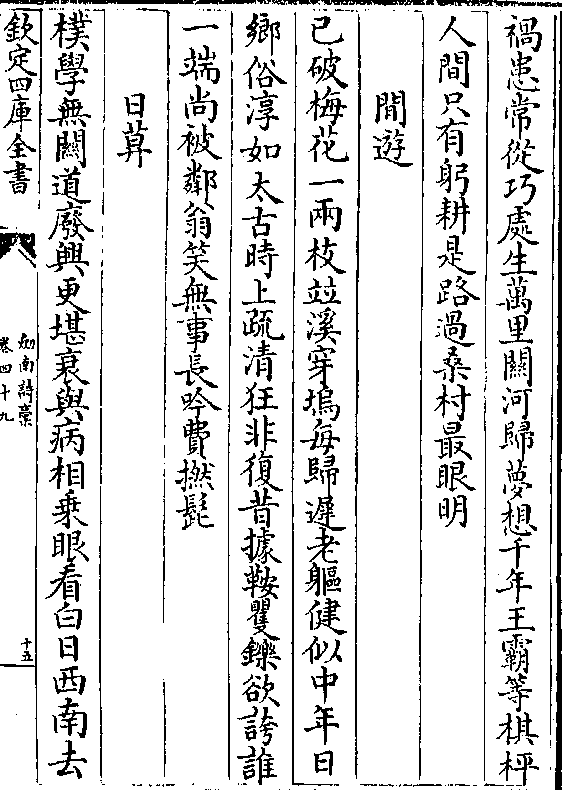 禍患常從巧處生萬里關河歸夢想千年王霸等棋枰
人間只有躬耕是路過桑村最眼明
閒遊
已破梅花一兩枝竝溪穿塢每歸遲老軀健似中年日
鄉俗淳如太古時上疏清狂非復昔據鞍矍鑠欲誇誰
一端尚被鄰翁笑無事長吟費撚髭
日莫
樸學無關道廢興更堪衰與病相乗眼看白日西南去
欽定四庫全書
劒南詩槀
卷四十九
十五